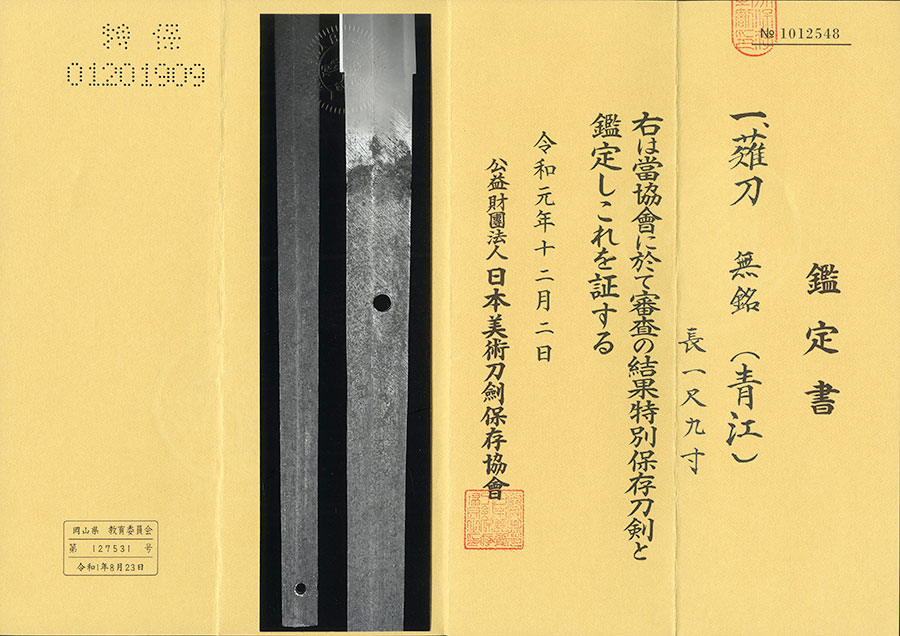 № 1012548
鑑定書
一、薙刀 無銘（青江）
長一尺九寸
右は當協會に於て審査の結果特別保存刀剣と
鑑定しこれを証する
令和元年十二月二日
公益財團法人 日本美術刀劍保存協會
特保
01201909
岡山県 教育委員会
第 127531 号
令和1年8月23日